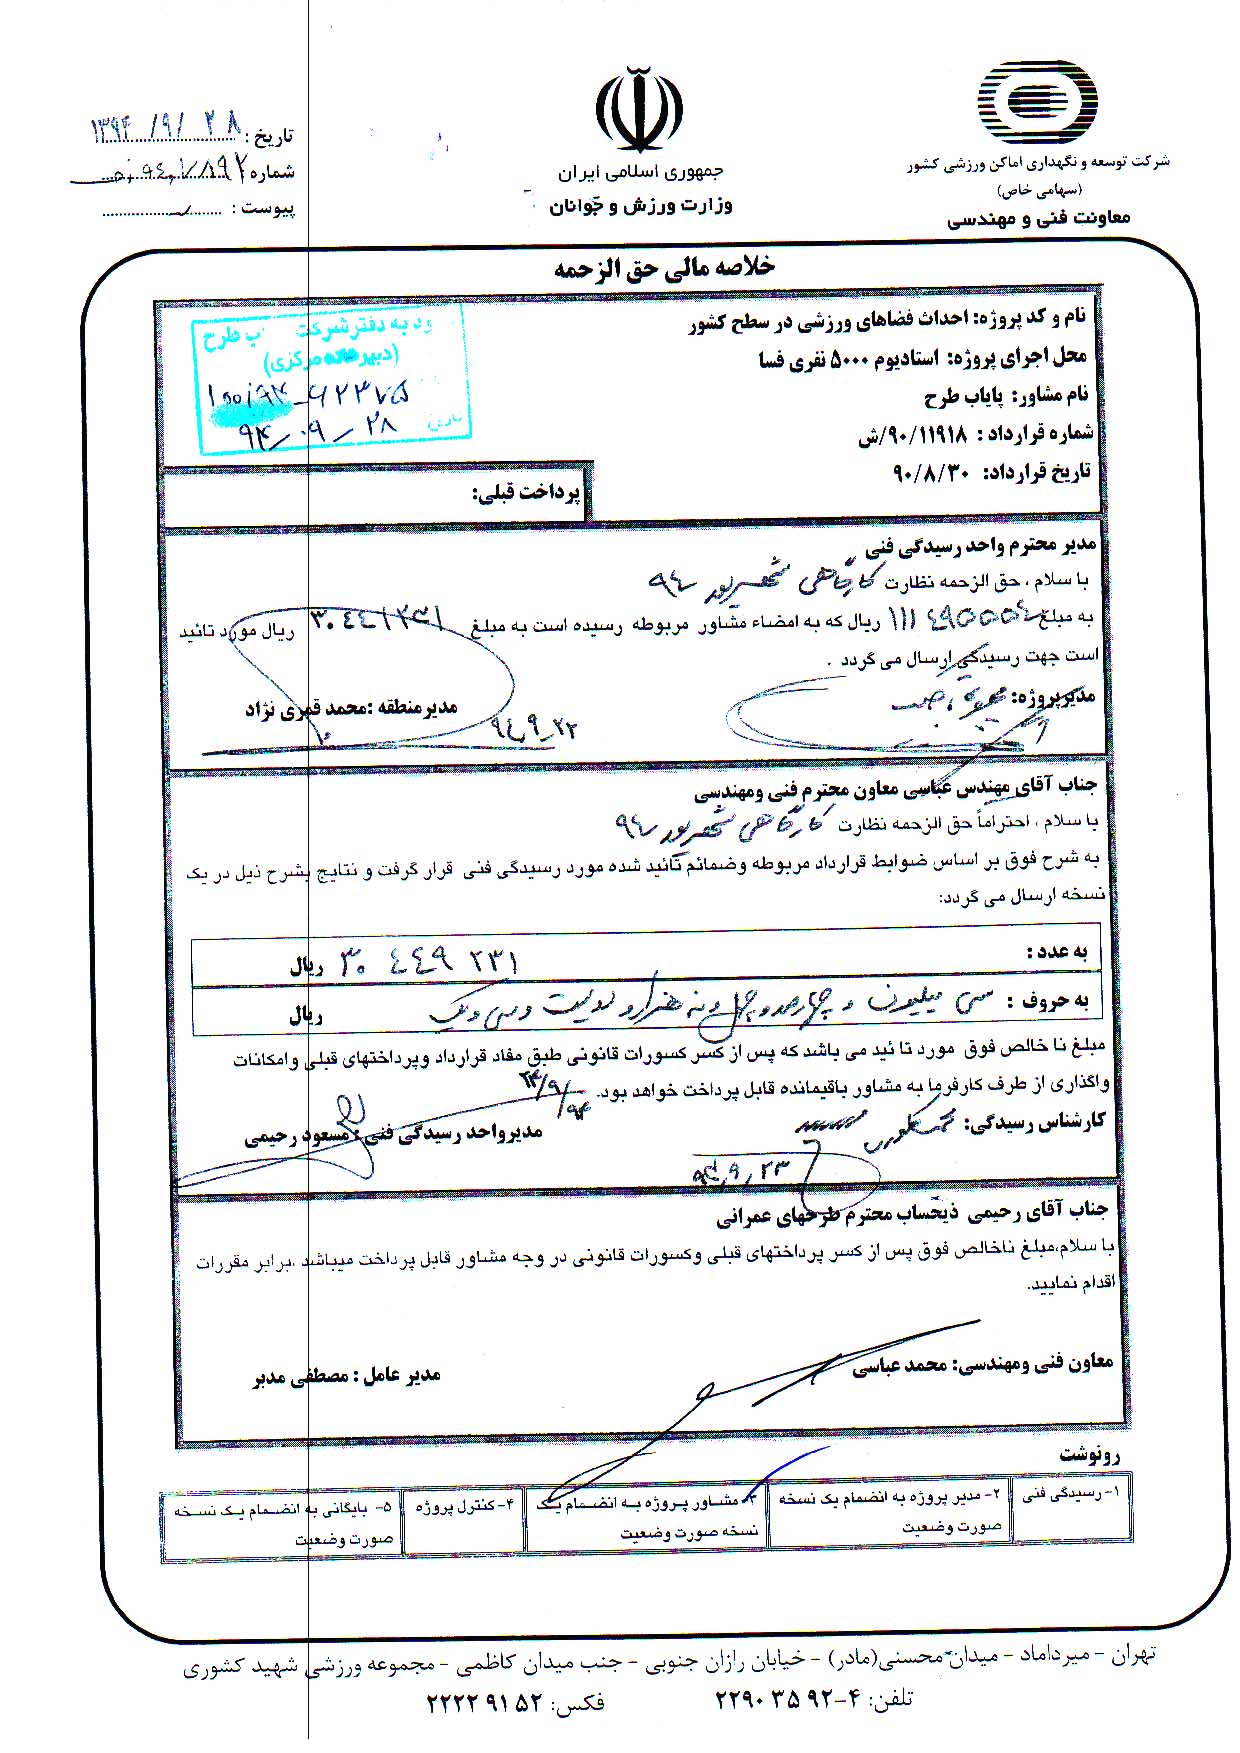 شرکت توسعه و نگهداری اماکن ورزشی کشور
(سهامی خاص)
معاونت فنی و مهندسی
جمهوری اسلامی ایران
وزارت ورزش و جوانان
تاریخ : ۱۳۹۴/۹/۲۸
شماره
پیوست :
خلاصه مالی حق الزحمه
نام و کد پروژه: احداث فضاهای ورزشی در سطح کشور
محل اجرای پروژه: استادیوم ۵۰۰۰ نفری فسا
نام مشاور: پایاب طرح
شماره قرارداد : ۹۰/۱۱۹۱۸/ش
تاریخ قرارداد: ۹۰/۸/۳۰
ود به دفتر شرکت ب طرح
(دبیرخانه مرکزی)
۹۴-۰۹-۲۸
پرداخت قبلی:
مدیر محترم واحد رسیدگی فنی
با سلام ، حق الزحمه نظارت کارگاهی شهریور ۹۴
به مبلغ ریال که به امضاء مشاور مربوطه رسیده است به مبلغ ریال مورد تائید
است جهت رسیدگی ارسال می گردد .
مدیرپروژه:
مدیر منطقه :محمد قمری نژاد
۹۴-۹-۲۲
جناب آقای مهندس عباسی معاون محترم فنی ومهندسی
با سلام ، احتراماً حق الزحمه نظارت کارگاهی شهریور ۹۴
به شرح فوق بر اساس ضوابط قرارداد مربوطه وضمائم تائید شده مورد رسیدگی فنی قرار گرفت و نتایج بشرح ذیل در یک
نسخه ارسال می گردد:
به عدد : ۳۰ ۴۴۹ ۲۳۱ ریال
به حروف : سی میلیون و چهارصد و چهل و نه هزار و دویست و سی و یک ریال
مبلغ نا خالص فوق مورد تا ئید می باشد که پس از کسر کسورات قانونی طبق مفاد قرارداد وپرداختهای قبلی وامکانات
واگذاری از طرف کارفرما به مشاور باقیمانده قابل پرداخت خواهد بود.
کارشناس رسیدگی:
مدیرواحد رسیدگی فنی : مسعود رحیمی
۹۴/۹/۲۳
جناب آقای رحیمی ذیحساب محترم طرحهای عمرانی
با سلام،مبلغ ناخالص فوق پس از کسر پرداختهای قبلی وکسورات قانونی در وجه مشاور قابل پرداخت میباشد .برابر مقررات
اقدام نمایید.
معاون فنی ومهندسی: محمد عباسی
مدیر عامل : مصطفی مدبر
رونوشت
۱-رسیدگی فنی
۲- مدیر پروژه به انضمام یک نسخه
صورت وضعیت
۳- مشاور پروژه به انضمام یک
نسخه صورت وضعیت
۴-کنترل پروژه
۵- بایگانی به انضمام یک نسخه
صورت وضعیت
تهران - میرداماد - میدان محسنی(مادر) - خیابان رازان جنوبی - جنب میدان کاظمی - مجموعه ورزشی شهید کشوری
تلفن: ۴-۲۲۹۰۳۵۹۲ فکس: ۲۲۲۲۹۱۵۲